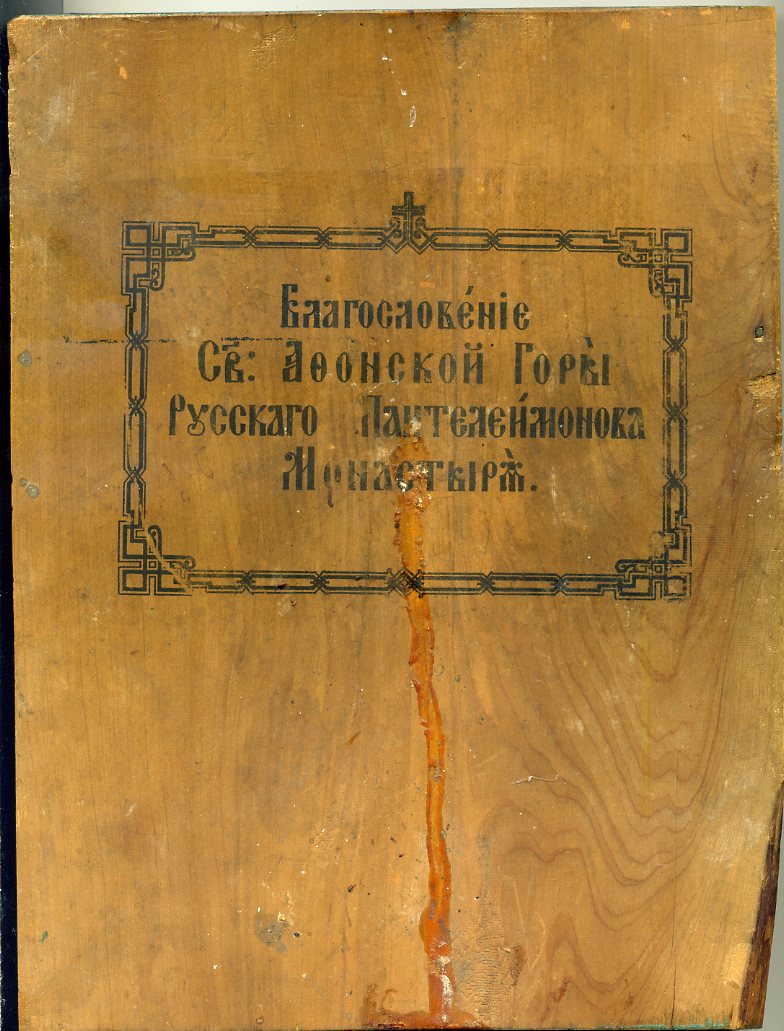 Благослове́нїе
Св҃: Аѳонской Горы̀
Рꙋсскаго Пантелеи́монова
Монастырѧ̀.